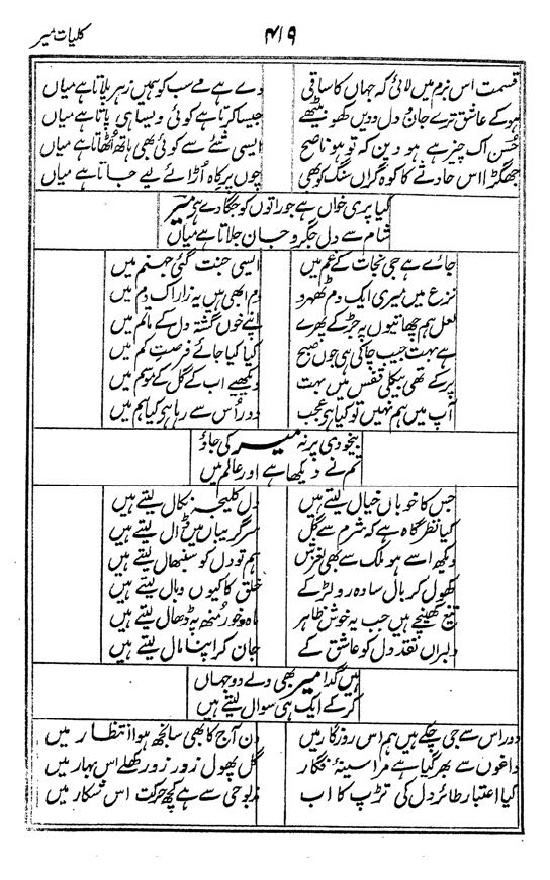 کلیات میر
۴۱۹
قسمت اس بزم میں لائی کہ جہاں کا ساقی دے ہے مے سب کو ہمیں زہر پلاتا ہے میاں
ہو کے عاشق ترے جان و دل و دیں کھو بیٹھے جیسا کرتا ہے کوئی ویسا ہی پاتا ہے میاں
حسن اک چیز ہے ہم ہوویں کہ تو ہو ناصح ایسی شے سے کوئی بھی ہاتھ اٹھاتا ہے میاں
جھگڑا اس حادثے کا کوہ گراں سنگ کو بھی جوں پر کاہ اڑائے لیے جاتا ہے میاں
کیا پری خواں ہے جو راتوں کو جگاوے ہے میر
شام سے دل جگر و جان جلاتا ہے میاں
جائے ہے جی نجات کے غم میں ایسی جنت گئی جہنم میں
نزع میں میری ایک دم ٹھہرو دم ابھی ہیں یہ زار اک دم میں
لعل ہم چھاتیوں پہ جڑ کے پھرے اپنے خوں گشتہ دل کے ماتم میں
ہے بہت جیب چاکی ہی جوں صبح کیا کیا جائے فرصت کم میں
پر کے تھی بیکلی قفس میں بہت دیکھیے اب کے گل کے موسم میں
آپ میں ہم نہیں تو کیا ہے عجب دور اس سے رہا ہے کیا ہم میں
بیخودی پر نہ میر کی جاؤ
تم نے دیکھا ہے اور عالم میں
جس کا خوباں خیال لیتے ہیں دل کلیجہ نکال لیتے ہیں
کیا نظر گاہ ہے کہ شرم سے گل سر گریباں میں ڈال لیتے ہیں
دیکھ اسے ہو ملک سے بھی لغزش ہم تو دل کو سنبھال لیتے ہیں
کھول کر بال سادہ رو لڑکے خلق کا کیوں وبال لیتے ہیں
تیغ کھینچے ہیں جب یہ خوش ظاہر ماہ و خور منھ پہ ڈھال لیتے ہیں
دلبراں نقد دل کو عاشق کے جان کر اپنا مال لیتے ہیں
ہیں گدا میر بھی ولے دو جہاں
کر کے ایک ہی سوال لیتے ہیں
دور اس سے جی چکے ہیں ہم اس روزگار میں دن آج کا بھی سانجھ ہوا انتظار میں
داغوں سے بھر گیا ہے مرا سینۂ فگار گل پھول زور زور کھلے اس بہار میں
کیا اعتبار طائر دل کی تڑپ کا اب مذبوحی سے ہے کچھ حرکت اس شکار میں